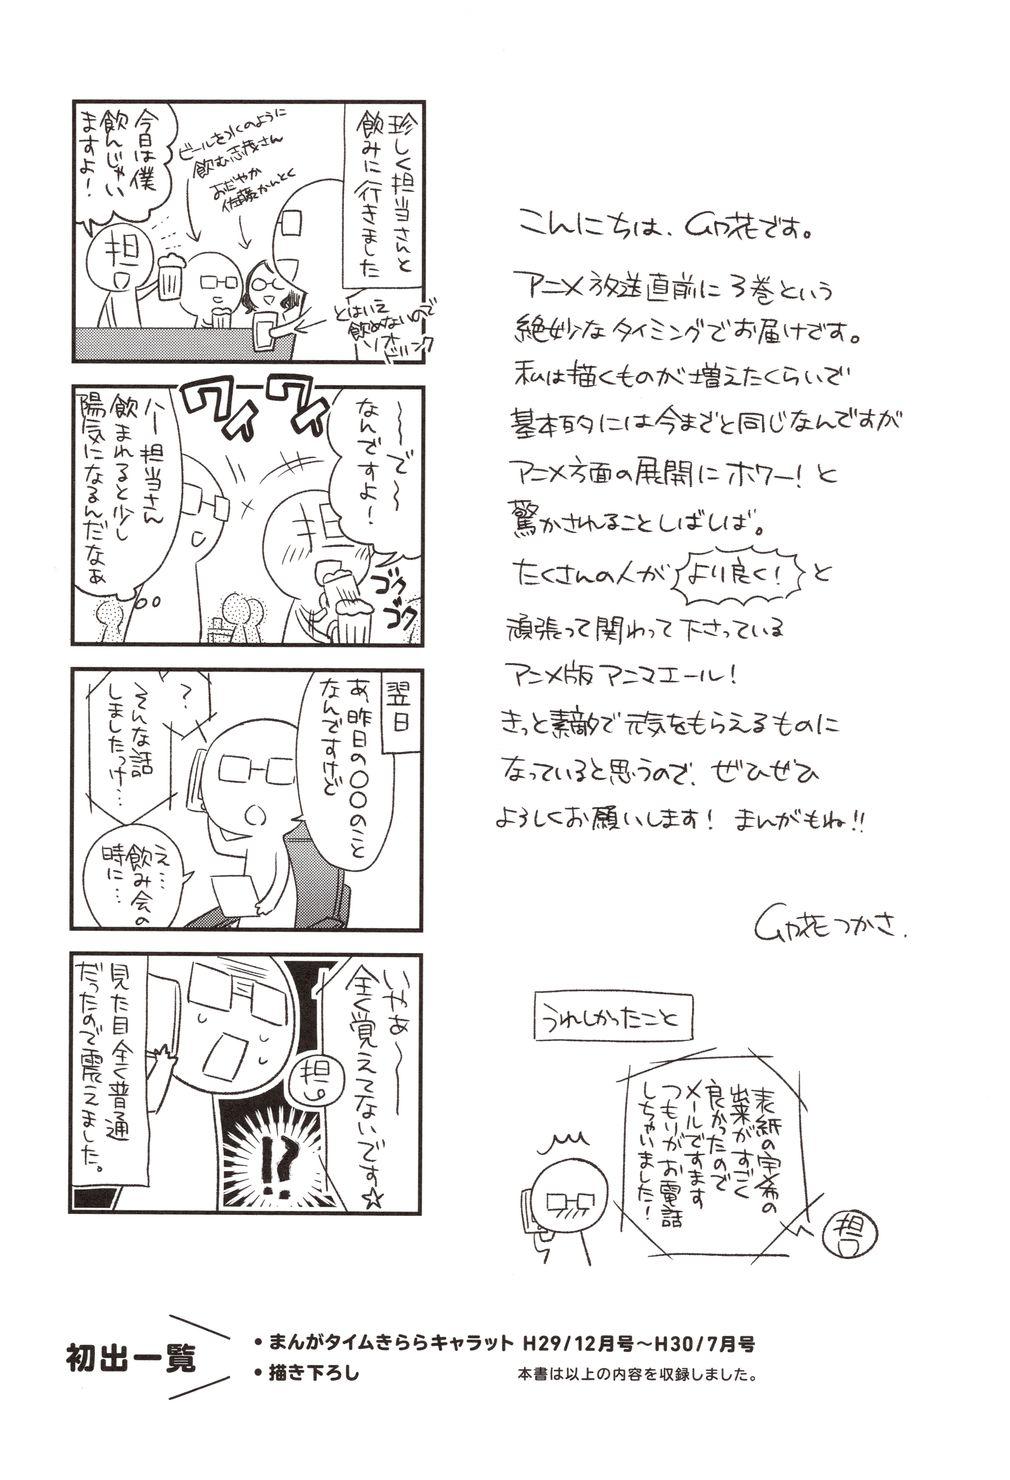 珍しく担当さんと
飲みに行きました
ビールを水のように
飲む志茂さん
おだやか
佐藤かんとく
今日は僕
飲んじゃい
ますよ!
担
とはいえ
飲めないので
ソフト
ドリンク
〜〜で〜
なんですよ!
ワイ
ワイ
担
ゴク
ゴク
ハー担当さん
飲まれると少し
陽気になるんだなぁ
翌日
あ、昨日の〇〇のこと
なんですけど
?
そんな話
しましたっけ…
え…
飲み会の
時に…
いやぁ〜
全く覚えてないです☆
担
!?
見た目全く普通
だったので震えました。
こんにちは、卯花です。
アニメ放送直前に3巻という
絶妙なタイミングでお届けです。
私は描くものが増えたくらいで
基本的には今までと同じなんですが
アニメ方面の展開にホワー!と
驚かされることしばしば。
たくさんの人がより良く!と
頑張って関わって下さっている
アニメ版アニマエール!
きっと素敵で元気をもらえるものに
なっていると思うので、ぜひぜひ
よろしくお願いします! まんがもね!!
卯花つかさ.
うれしかったこと
表紙の宇希の
出来がすごく
良かったので
メールですます
つもりがお電話
しちゃいました!
担
初出一覧
・まんがタイムきららキャラット H29/12月号〜H30/7月号
・描き下ろし
本書は以上の内容を収録しました。